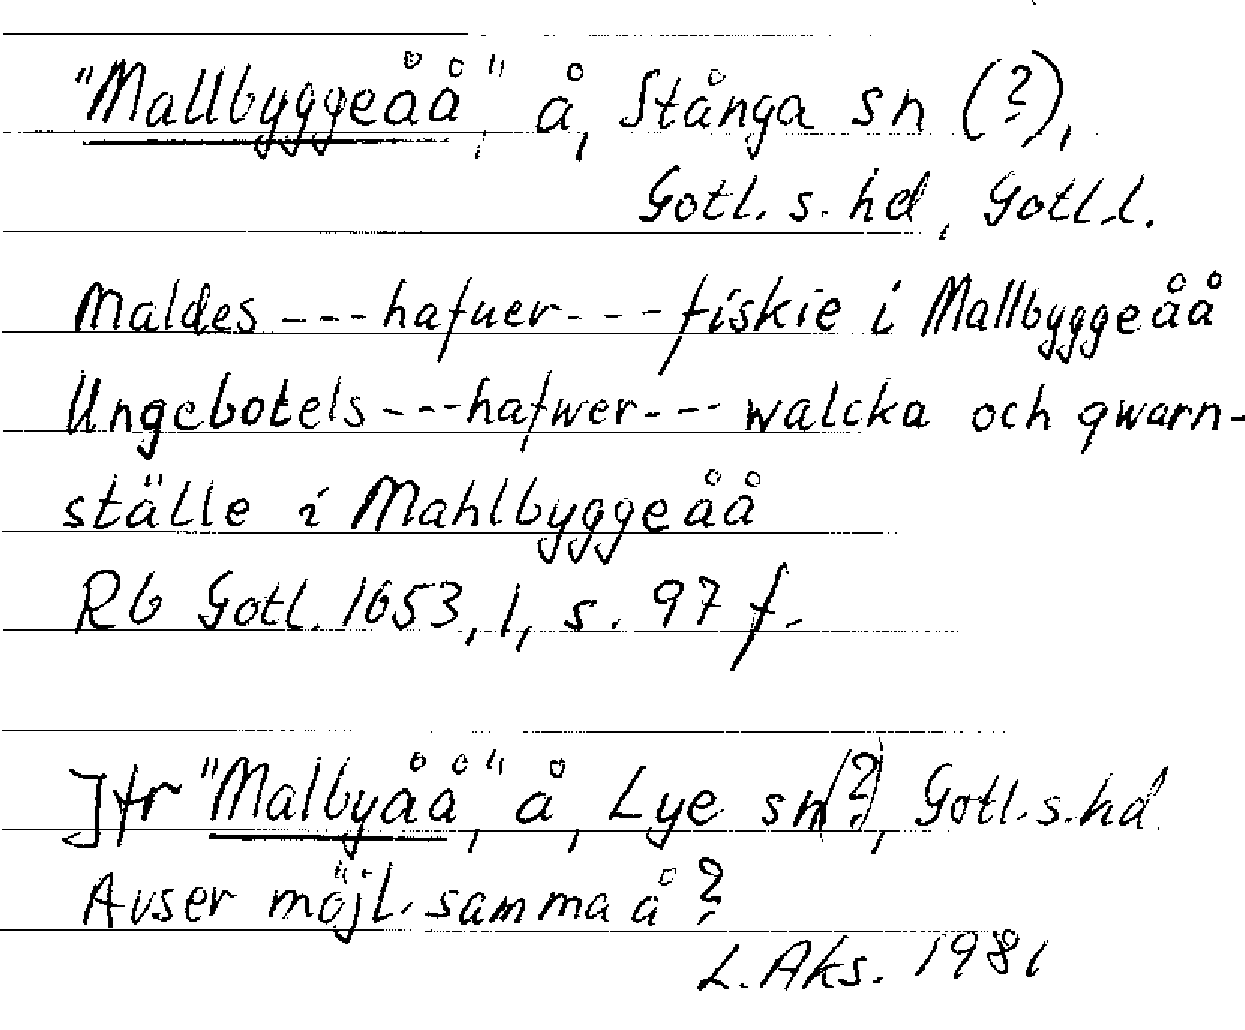 "Mallbyggeåå", å, Stånga sn (?),
Gotl. s. hd, Gotl.l.
Maldes --- hafuer --- fiskie i Mallbyggeåå
Ungebotels --- hafwer --- walcka och qwarn-
ställe i Mahlbyggeåå
Rb Gotl. 1653, 1, s. 97 f.
Jfr "Malbyåå", å, Lye sn (?), Gotl. s. hd
Avser möjl. samma å?
L. Aks. 1981